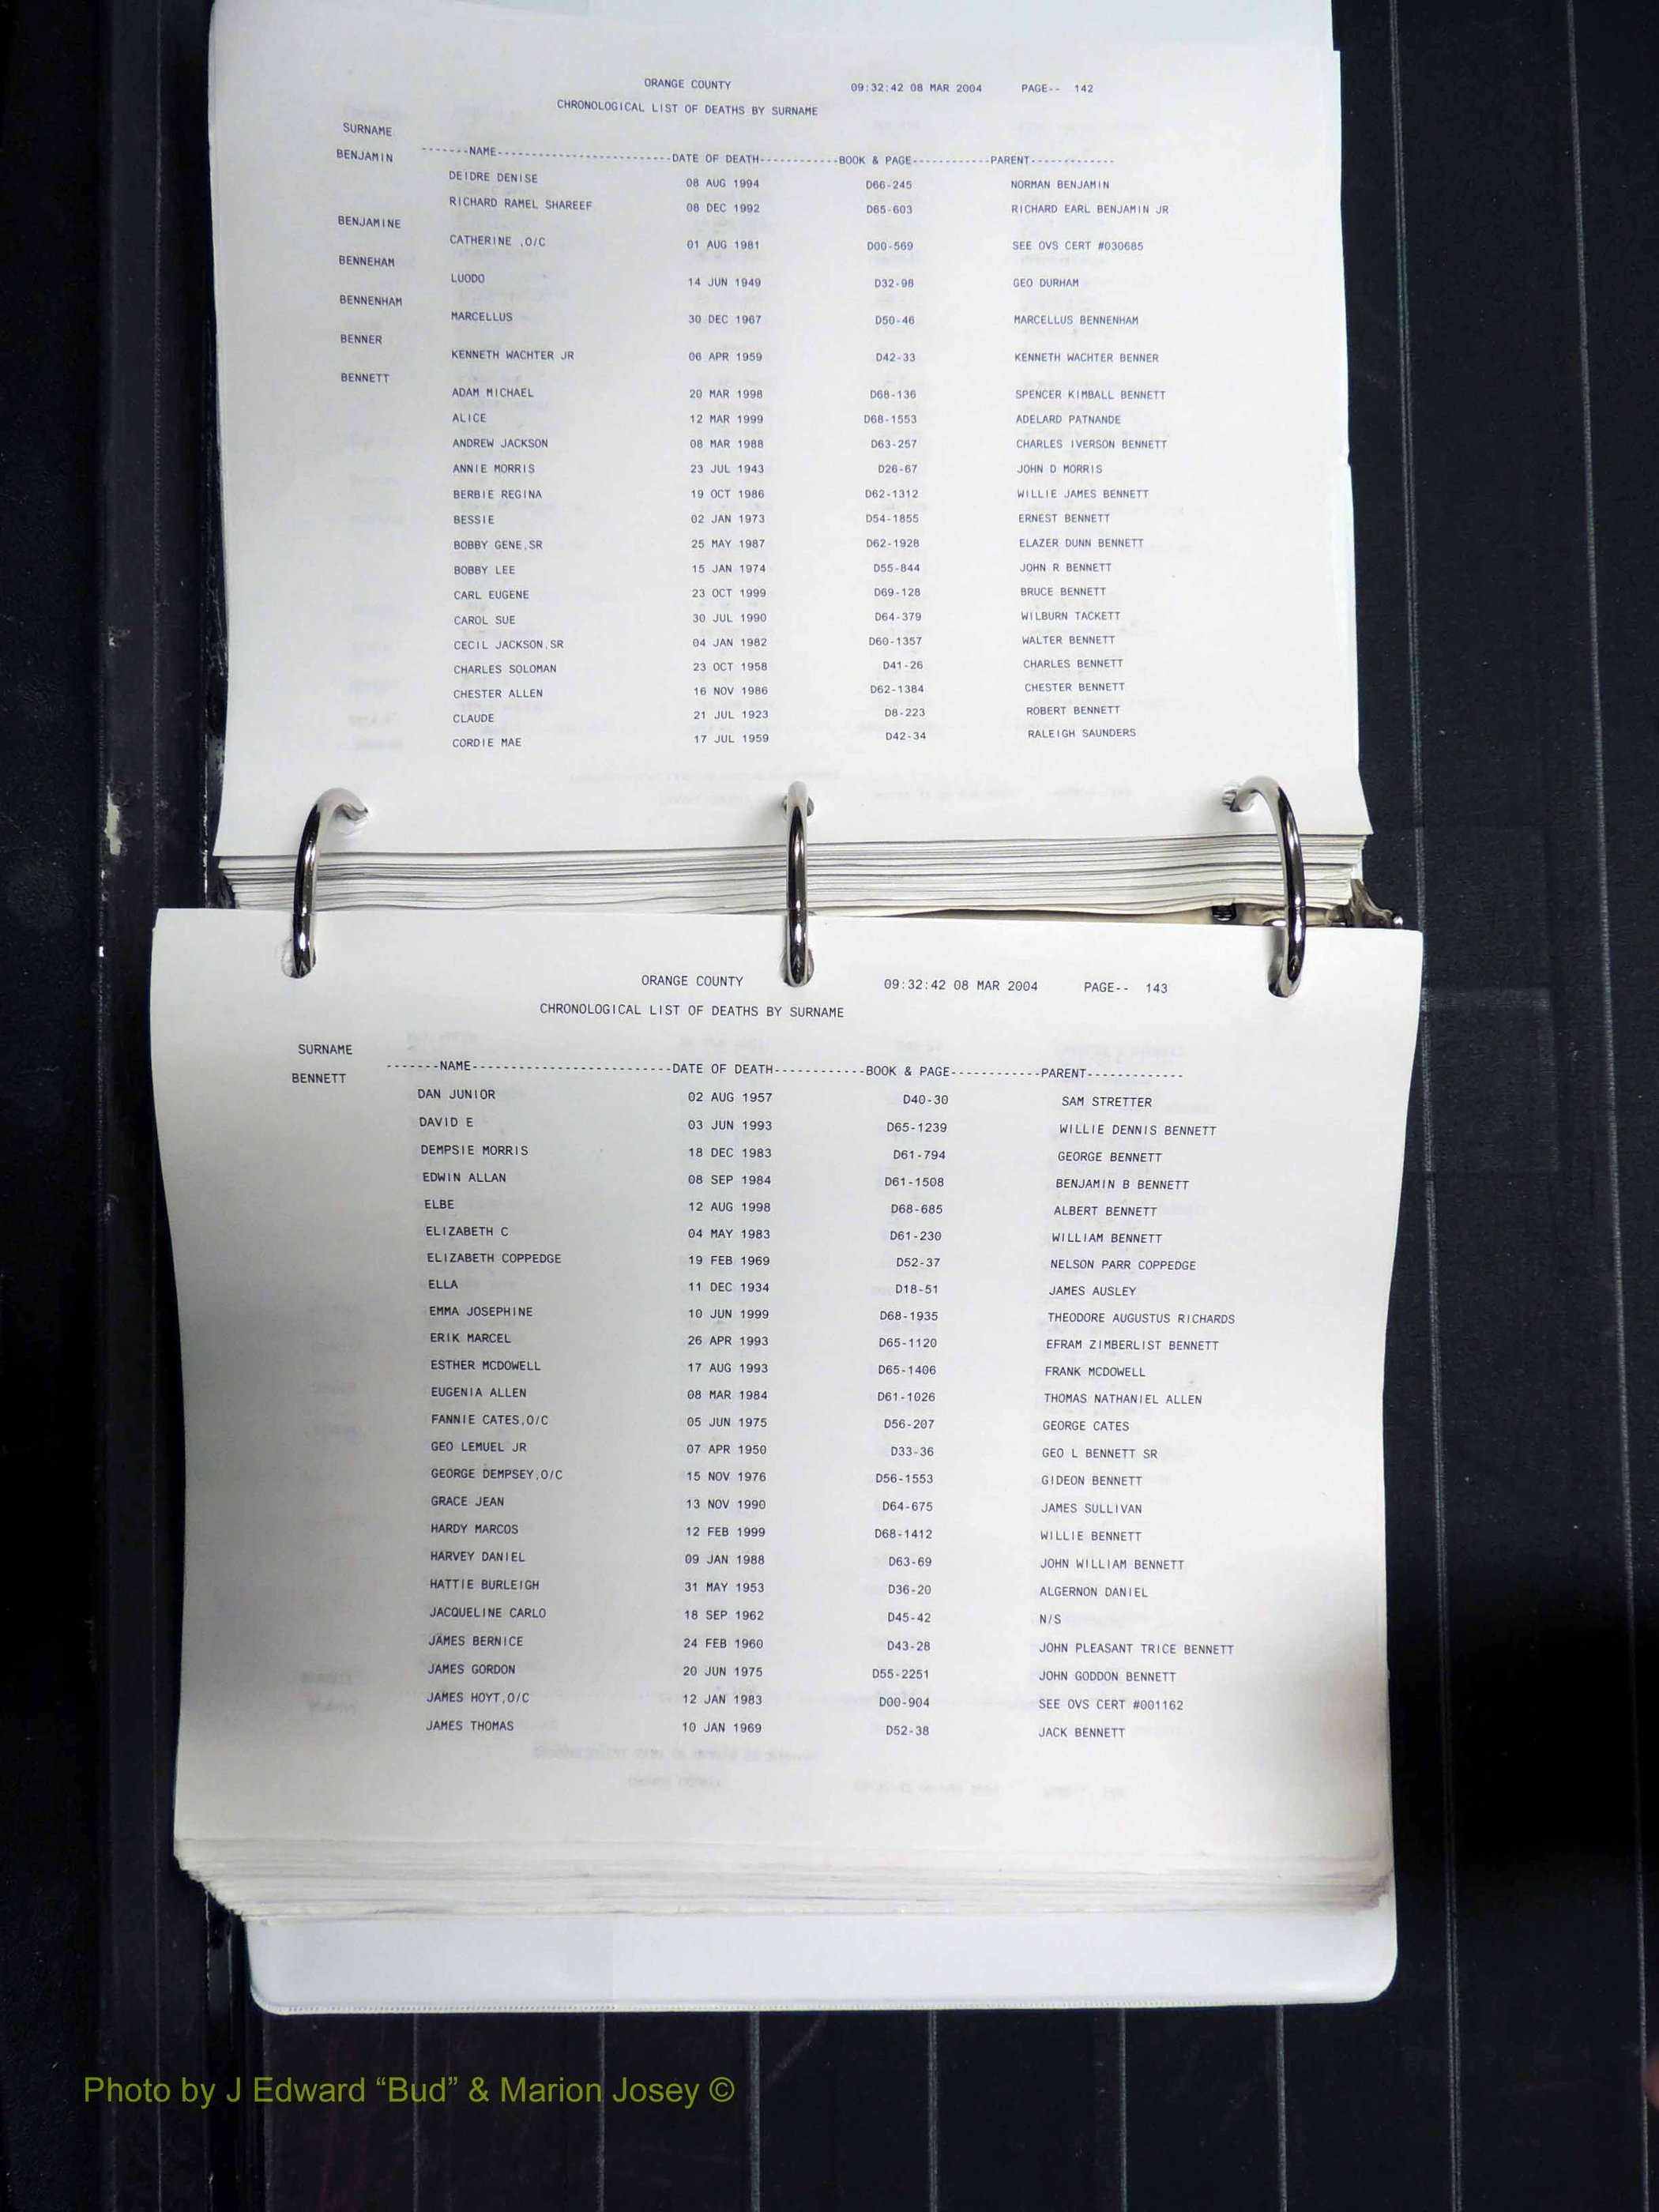 ORANGE COUNTY 09:32:42 08 MAR 2004 PAGE-- 142
CHRONOLOGICAL LIST OF DEATHS BY SURNAME
SURNAME
-------NAME--------------------------DATE OF DEATH------------BOOK & PAGE------------PARENT-------------
BENJAMIN
DEIDRE DENISE 08 AUG 1994 D66-245 NORMAN BENJAMIN
RICHARD RAMEL SHAREEF 08 DEC 1992 D65-603 RICHARD EARL BENJAMIN JR
BENJAMINE
CATHERINE ,O/C 01 AUG 1981 D00-569 SEE OVS CERT #030685
BENNEHAM
LUODO 14 JUN 1949 D32-98 GEO DURHAM
BENNENHAM
MARCELLUS 30 DEC 1967 D50-46 MARCELLUS BENNENHAM
BENNER
KENNETH WACHTER JR 06 APR 1959 D42-33 KENNETH WACHTER BENNER
BENNETT
ADAM MICHAEL 20 MAR 1998 D68-136 SPENCER KIMBALL BENNETT
ALICE 12 MAR 1999 D68-1553 ADELARD PATNANDE
ANDREW JACKSON 08 MAR 1988 D63-257 CHARLES IVERSON BENNETT
ANNIE MORRIS 23 JUL 1943 D26-67 JOHN D MORRIS
BERBIE REGINA 19 OCT 1986 D62-1312 WILLIE JAMES BENNETT
BESSIE 02 JAN 1973 D54-1855 ERNEST BENNETT
BOBBY GENE,SR 25 MAY 1987 D62-1928 ELAZER DUNN BENNETT
BOBBY LEE 15 JAN 1974 D55-844 JOHN R BENNETT
CARL EUGENE 23 OCT 1999 D69-128 BRUCE BENNETT
CAROL SUE 30 JUL 1990 D64-379 WILBURN TACKETT
CECIL JACKSON,SR 04 JAN 1982 D60-1357 WALTER BENNETT
CHARLES SOLOMAN 23 OCT 1958 D41-26 CHARLES BENNETT
CHESTER ALLEN 16 NOV 1986 D62-1384 CHESTER BENNETT
CLAUDE 21 JUL 1923 D8-223 ROBERT BENNETT
CORDIE MAE 17 JUL 1959 D42-34 RALEIGH SAUNDERS
ORANGE COUNTY 09:32:42 08 MAR 2004 PAGE-- 143
CHRONOLOGICAL LIST OF DEATHS BY SURNAME
SURNAME
-------NAME--------------------------DATE OF DEATH------------BOOK & PAGE------------PARENT-------------
BENNETT
DAN JUNIOR 02 AUG 1957 D40-30 SAM STRETTER
DAVID E 03 JUN 1993 D65-1239 WILLIE DENNIS BENNETT
DEMPSIE MORRIS 18 DEC 1983 D61-794 GEORGE BENNETT
EDWIN ALLAN 08 SEP 1984 D61-1508 BENJAMIN B BENNETT
ELBE 12 AUG 1998 D68-685 ALBERT BENNETT
ELIZABETH C 04 MAY 1983 D61-230 WILLIAM BENNETT
ELIZABETH COPPEDGE 19 FEB 1969 D52-37 NELSON PARR COPPEDGE
ELLA 11 DEC 1934 D18-51 JAMES AUSLEY
EMMA JOSEPHINE 10 JUN 1999 D68-1935 THEODORE AUGUSTUS RICHARDS
ERIK MARCEL 26 APR 1993 D65-1120 EFRAM ZIMBERLIST BENNETT
ESTHER MCDOWELL 17 AUG 1993 D65-1406 FRANK MCDOWELL
EUGENIA ALLEN 08 MAR 1984 D61-1026 THOMAS NATHANIEL ALLEN
FANNIE CATES,O/C 05 JUN 1975 D56-207 GEORGE CATES
GEO LEMUEL JR 07 APR 1950 D33-36 GEO L BENNETT SR
GEORGE DEMPSEY,O/C 15 NOV 1976 D56-1553 GIDEON BENNETT
GRACE JEAN 13 NOV 1990 D64-675 JAMES SULLIVAN
HARDY MARCOS 12 FEB 1999 D68-1412 WILLIE BENNETT
HARVEY DANIEL 09 JAN 1988 D63-69 JOHN WILLIAM BENNETT
HATTIE BURLEIGH 31 MAY 1953 D36-20 ALGERNON DANIEL
JACQUELINE CARLO 18 SEP 1962 D45-42 N/S
JAMES BERNICE 24 FEB 1960 D43-28 JOHN PLEASANT TRICE BENNETT
JAMES GORDON 20 JUN 1975 D55-2251 JOHN GODDON BENNETT
JAMES HOYT,O/C 12 JAN 1983 D00-904 SEE OVS CERT #001162
JAMES THOMAS 10 JAN 1969 D52-38 JACK BENNETT
Photo by J Edward “Bud” & Marion Josey ©